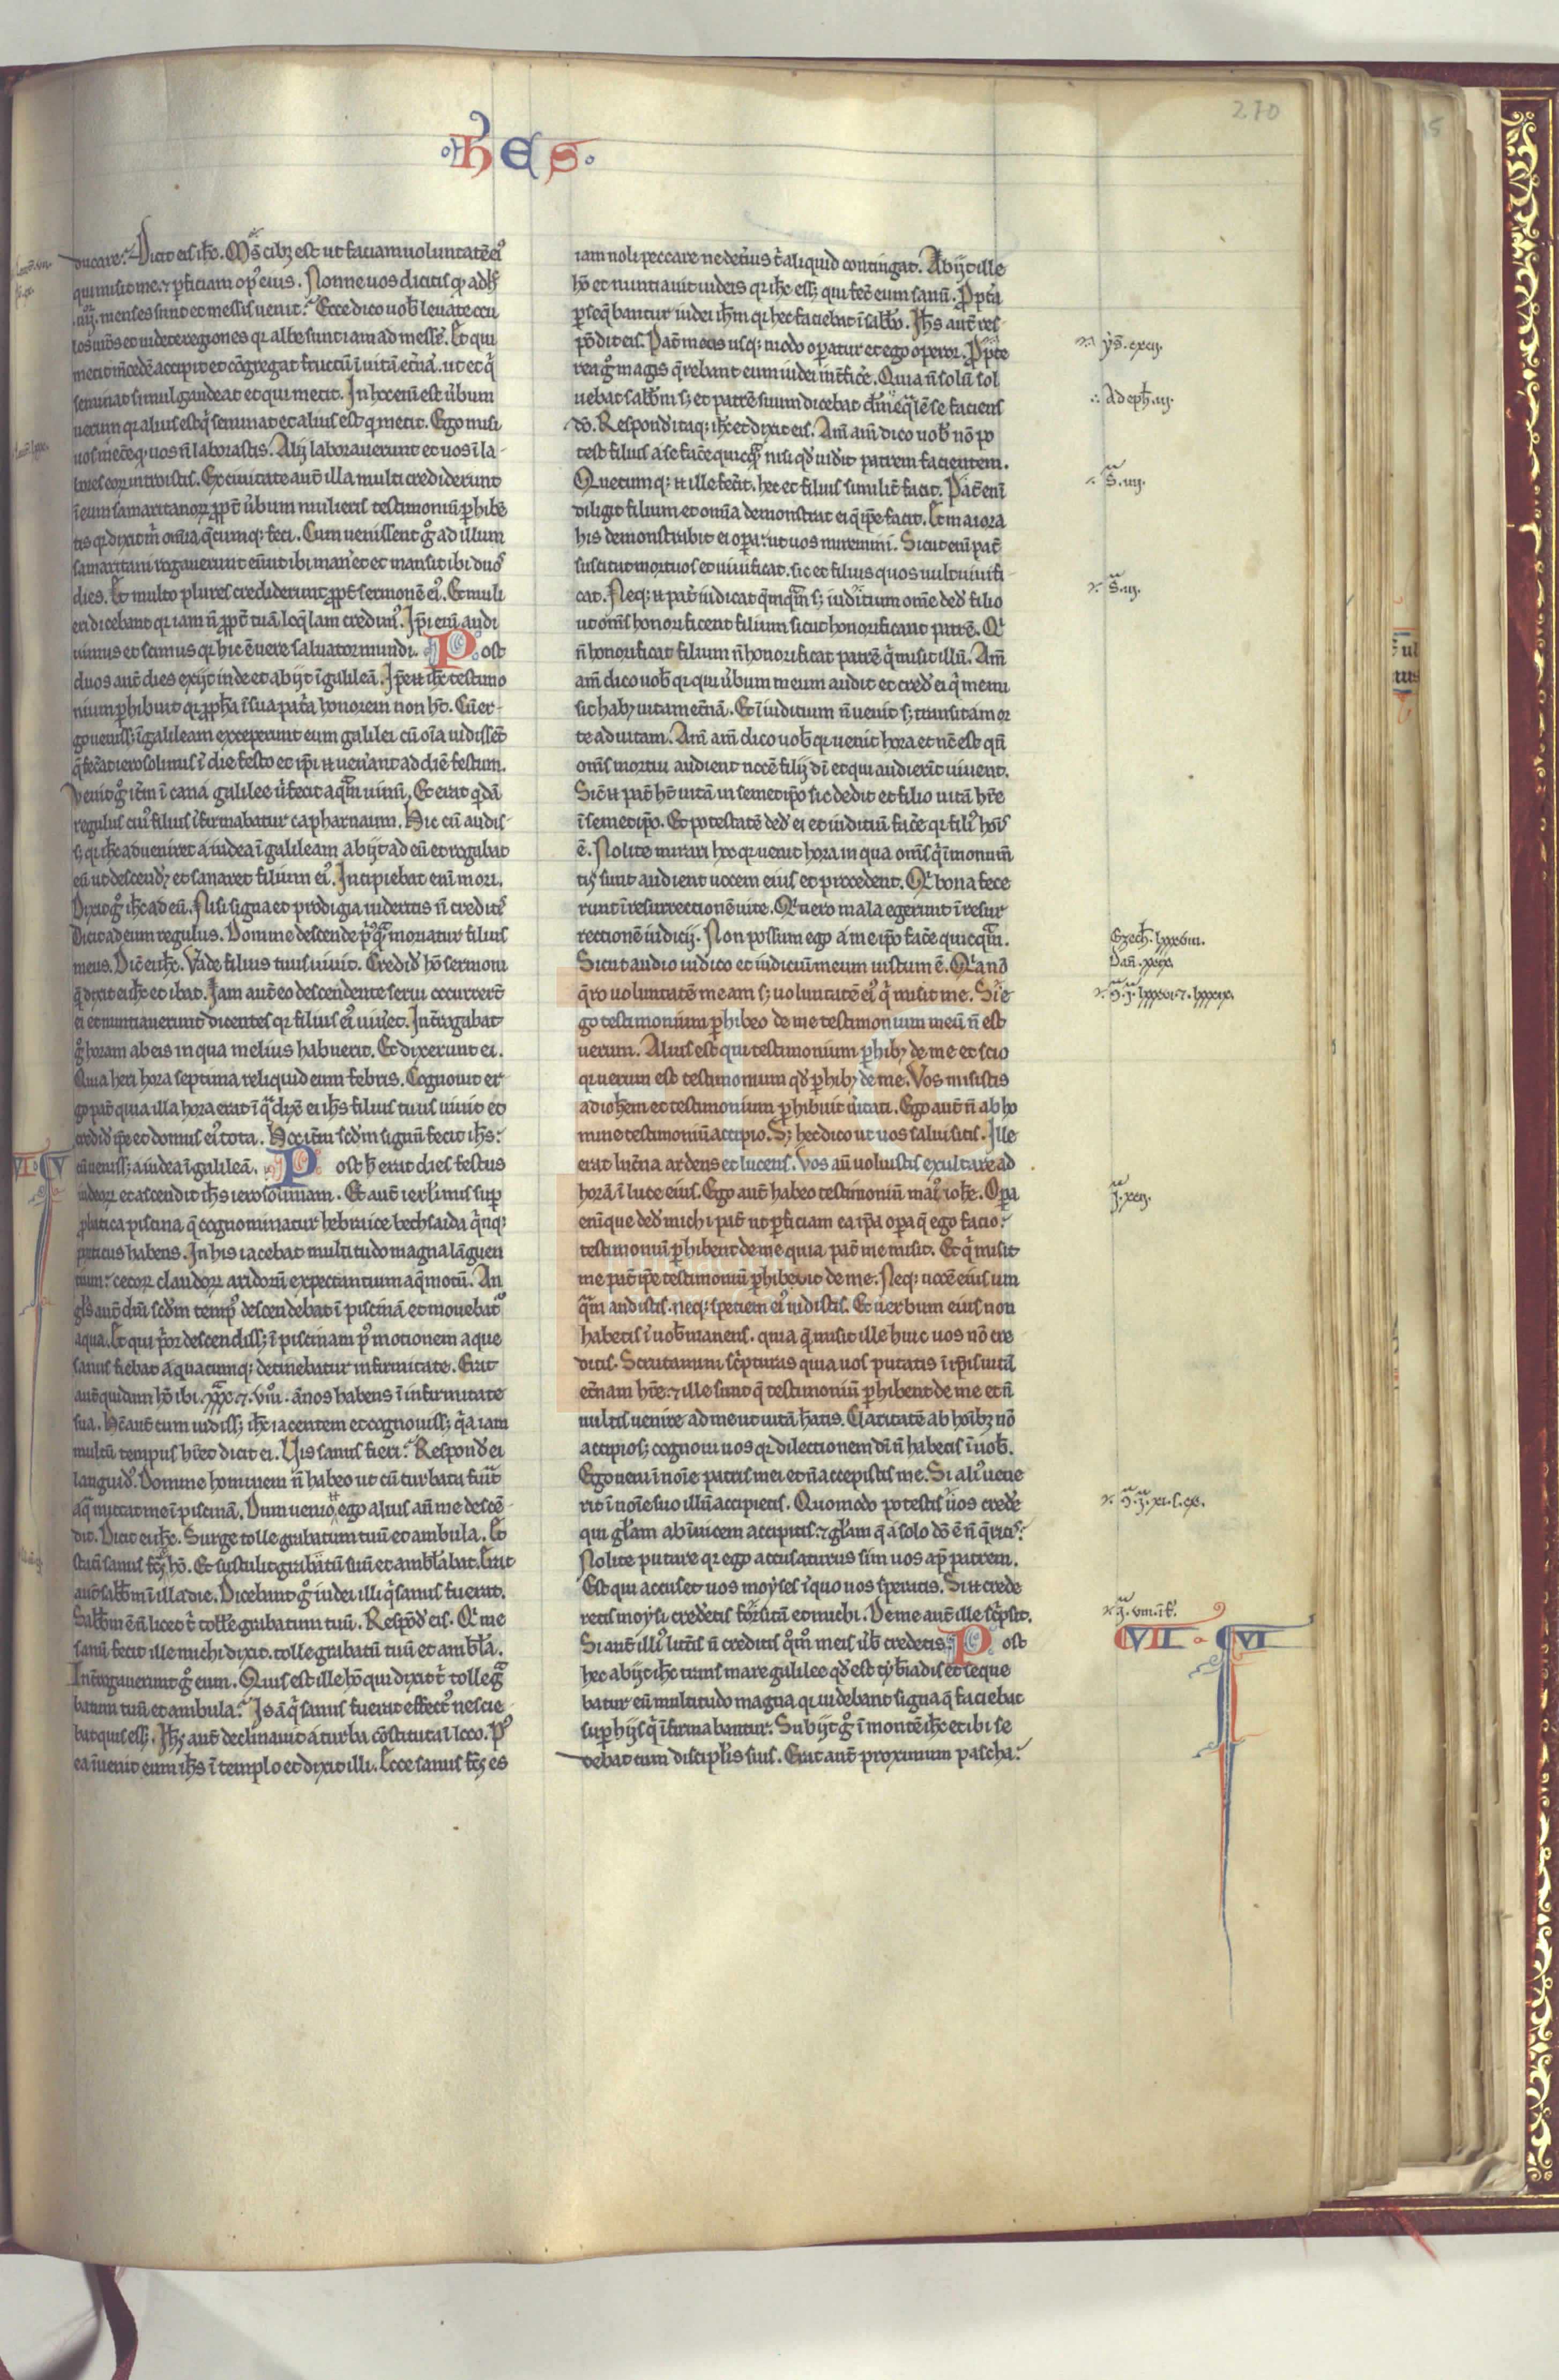 ·h es·
270
ducare. Dicit eis ihc. Ms cib est ut faciam uoluntatē ei
qui misit me. ⁊ pficiam op eius. Nonne uos dicitis q adh
.iiij. menses sunt et messis uenit. Ecce dico uob leuate ocu
los uros et uidete regiones qr albe sunt iam ad messē. Et qui
metit mcedē accipit et cōgregat fructū ī uitā etnā. ut et q
seminat simul gaudeat et qui metit. In hoc eni est ubum
uerum qr alius est q seminat et alius est q metit. Ego misi
uos metē q uos n laborastis. Alij laborauerunt et uos ī la-
bores eor introistis. Ex ciuitate aut illa multi crediderunt
ī eum samaritanor ppt ubum mulieris testimoniū phibē
tis qr dixit m omīa qcumq; feci. Cum uenissent g ad illum
samaritani rogauerunt eū ut ibi manet et mansit ibi duos
dies. Et multo plures crediderunt ppt sermonē ei. Et muli
eri dicebant qr iam n ppt tuā loqlam credim. Ipi eni audi
uimus et scimus qr hic ē uere saluator mundi. Post
duos aut dies exijt inde et abijt ī galileā. Ipe n ihc testimo
nium phibuit qr ppha ī sua patia honorem non ht. Cū er-
go ueniss; ī galileam exceperunt eum galilei cū oīa uidissēt
q fecat ierosolimis ī die festo et ipi n uenāt ad diē festum.
Venit g itm ī cana galilee u fecit aqm uinū. Et erat qdā
regulus cui filius īfirmabatur capharnaum. Hic cū audis-
s; qr ihc adueniret a iudea ī galileam abijt ad eū et rogabat
eū ut descend; et sanaret filium ei. Incipiebat eni mori.
Dixit g ihc ad eū. Nisi signa et prodigia uideritis n creditis
Dicit ad eum regulus. Domine descende pusq moriatur filius
meus. Dic ei ihc. Vade filius tuus uiuit. Credid hō sermoni
q dixit ei ihc et ibat. Iam aut eo descendente serui occurrerūt
ei et nuntiauerunt dicentes qr filius ei uiuet. Introgabat
g horam ab eis in qua melius habuerit. Et dixerunt ei.
Quia heri hora septima reliquid eum febris. Cognouit er-
go pat quia illa hora erat ī q dixē ei ihs filius tuus uiuit et
credid ipe et domus ei tota. Hoc itm scdm signū fecit ihs.
cū ueniss; a iudea ī galileā. Post h erat dies festus
iudeor et ascendit ihs ierosolimam. Est aut ierlimis sup
pbatica piscina q cognominatur hebraice bethsaida qnq;
porticus habens. In his iacebat multitudo magna lāguen
tium. cecor claudor aridorū expectantium aq motū. An
gls aut dni scdm temp descendebat ī piscinā et mouebat
aqua. Et qui por descendiss; ī piscinam p motionem aque
sanus fiebat a quacumq; detinebatur infirmitate. Erat
aut quidam hō ibi .xxx. ⁊ .viii. ānos habens ī infirmitate
sua. Hc aut cum uidiss; ihc iacentem et cognouiss; qa iam
multū tempus hret dicit ei. Vis sanus fieri. Respond ei
languid. Domine hominem n habeo ut cū turbata fuit
aq mittat me ī piscinā. Dum uenio n ego alius añ me descē-
dit. Dicit ei ihc. Surge tolle grabatum tuū et ambula. Et
statī sanus fcs hō. Et sustulit grabatū suū et amblabat. Erat
aut sabbm ī illa die. Dicebant g iudei illi q sanus fuerat.
Sabbm ē n licet t tolle grabatum tuū. Respōd eis. Q me
sanū fecit ille michi dixit. tolle grabatū tuū et ambla.
Introgauerunt g eum. Quis est ille hō qui dixit t tolle g
batum tuū et ambula. Is a q sanus fuerat effect nescie
bat quis ess;. Ihs aut declinauit a turba cōstituta ī loco. P
ea īuenit eum ihs ī templo et dixit illi. Ecce sanus fcs es
iam noli peccare ne deterius t aliquid contingat. Abijt ille
hō et nuntiauit iudeis qr ihc ess; qui fec eum sanū. Ppta
pseqbantur iudei ihm qr hec faciebat ī sabbo. Ihs aut res-
pōdit eis. Pat meus usq; modo opatur et ego operor. Ppte
rea g magis qrebant eum iudei intficē. Quia n solū sol
uebat sabbm s; et patrē suum dicebat dm eqlē se faciens
dō. Respond itaq; ihc et dixit eis. Am am dico uob nō po
test filius a se facē quicq nisi qd uidit patrem facientem.
Quecumq; n ille fecit. hec et filius similit facit. Pat eni
diligit filium et omīa demonstrat ei q ipe facit. Et maiora
his demonstrabit ei opa. ut uos miremini. Sicut eni pat
suscitat mortuos et uiuificat. sic et filius quos uult uiuifi-
cat. Neq; n pat iudicat qmqm s; iuditium omē ded filio
ut oms honorificent filium sicut honorificant patrē. Q
n honorificat filium n honorificat patrē q misit illū. Am
am dico uob qr qui ubum meum audit et cred ei q me mi
sit hab; uitam etnā. Et ī iuditium n uenit s; transit a mor
te ad uitam. Am am dico uob qr uenit hora et nc est qn
oms mortui audient uocē filij di et qui audierīt uiuent.
Sic n pat ht uitā in semetipo sic dedit et filio uitā hre
ī semetipo. Et potestatē ded ei et iuditiū facē qr fili hois
ē. Nolite mirari hoc qr uenit hora in qua oms q ī monum
tis sunt audient uocem eius et procedent. Q bona fece
runt ī resurrectionē uite. Q uero mala egerunt ī resur
rectionē iudicij. Non possum ego a me ipo facē quicqm.
Sicut audio iudico et iudiciū meum iustum ē. Q a nō
qro uoluntatē meam s; uoluntatē ei q misit me. Si e
go testimonium phibeo de me testimonium meū n est
uerum. Alius est qui testimonium phib; de me et scio
qr uerum est testimonium qd phib; de me. Vos misistis
ad iohem et testimonium phibuit uitati. Ego aut n ab ho
mine testimoniū accipio. S; hec dico ut uos salui sitis. Ille
erat lucna ardens et lucens. Vos au uoluistis exultare ad
horā ī luce eius. Ego aut habeo testimoniū mai iohe. Opa
eni que ded michi pat ut pficiam ea ipa opa q ego facio.
testimoniū phibent de me quia pat me misit. Et q misit
me pat ipe testimoniū phibuit de me. Neq; uocē eius um
qm audistis. neq; speciem ei uidistis. Et uerbum eius non
habetis ī uob manens. quia q misit ille huic uos nō cre
ditis. Scrutamini scpturas quia uos putatis ī ipis uitā
etnam hre. ⁊ ille sunt q testimoniū phibent de me et n
uultis uenire ad me ut uitā hatis. Claritatē ab hoib; nō
accipio s; cognoui uos qr dilectionem di n habetis ī uob.
Ego ueni ī noīe patris mei et n accepistis me. Si ali uene
rit ī noīe suo illū accipietis. Quomodo potestis uos credē
qui glam ab īuicem accipitis. ⁊ glam q a solo dō ē n qritis.
Nolite putare qr ego accusaturus sim uos ap patrem.
Est qui accuset uos moyses ī quo uos speratis. Si n crede
retis moysi credetis forsitā et michi. De me aut ille scpsit.
Si aut illi litis n creditis qm meis ub credetis. Post
hec abijt ihc trans mare galilee qd est tyberiadis et seque
batur eū multitudo magna qr uidebant signa q faciebat
sup hijs q īfirmabantur. Subijt g ī montē ihc et ibi se
debat cum disciplis suis. Erat aut proximum pascha.
ys. exc
Ad eph. iij.
S. iij.
S. iij.
Ezech. lxxxviii.
Dan. xxix.
VII CVI